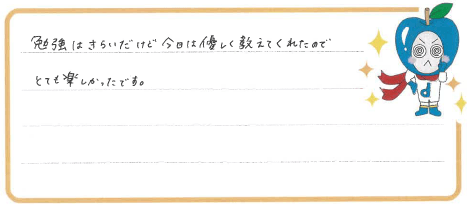 勉強はきらいだけど今日は優しく教えてくれたので
とても楽しかったです。
d